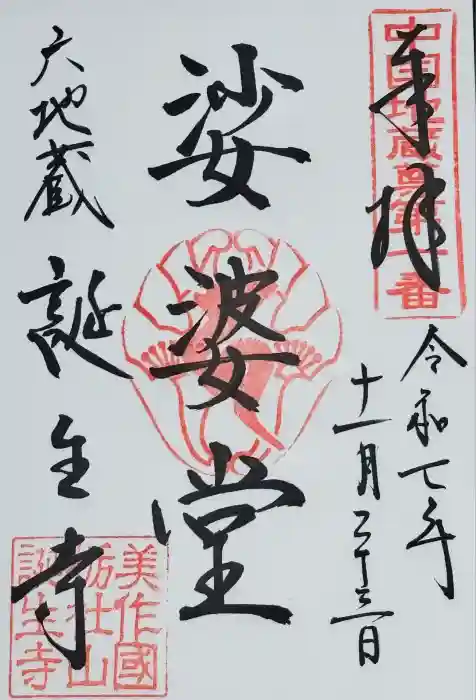 奉拝
中国地蔵尊第十番
令和七年
十一月二十三日
娑婆堂
六地蔵
誕生寺
美作國
栃社山
誕生寺